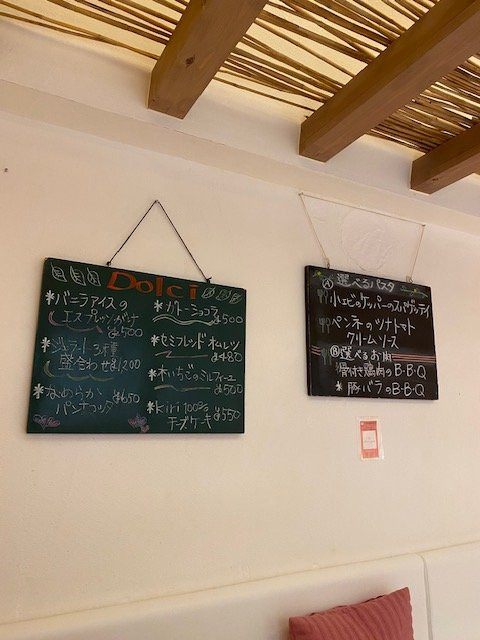 Dolci
*バニラアイスの
エスプレッソがけ
¥500
*ジェラート3種
盛合わせ ¥1,200
*なめらか
パンナコッタ ¥650
*ガトーショコラ
¥500
*セミフレッド オムレツ
¥480
*木いちごのミルフィーユ
¥500
*kiri 100%
チーズケーキ ¥550
Ⓐ選べるパスタ
小エビのケッパーのスパゲッティ
ペンネのツナトマト
クリームソース
Ⓑ選べるお肉
骨付き鶏肉のB-B-Q
*豚バラのB-B-Q